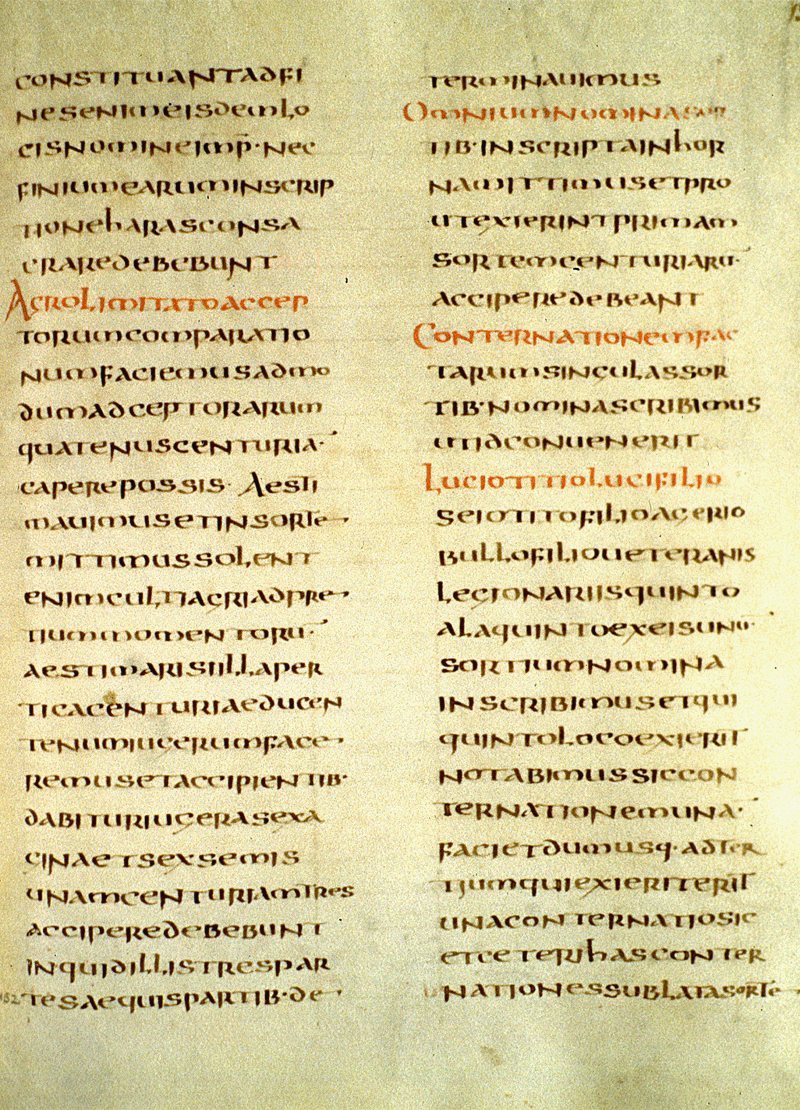 CONSTITUANTADFI
NESENIMEISDEMLO
CISNOMINEIMP·NEC
FINIUMEARUMINSCRIP
TIONEHARASCONSA
CRAREDEBEBUNT
ACROLIMITATOACCEP
TORUMCOMPARATIO
NUMFACIEMUSADMO
DUMADCEPTORARUM
QUATENUSCENTURIA·
CAPEREPOSSIS AESTI
MAUIMUSETINSORTE
MITTIMUSSOLENT
ENIMCULTIAGRIADPRE
TIUMMOMENTORU·
AESTIMARISILLAPER
TICACENTURIAEDUCEN
TENUMIUGERUMFACE
REMUSETACCIPIENTIB·
DABITURIUGERASEXA
GINAETSEXSEMIS
UNAMCENTURIAMTRES
ACCIPEREDEBEBUNT
INQUIDILLISTRESPAR
TESAEQUISPARTIB·DE
TERMINAUIMUS
OMNIUMNOMINASOR
TIB·INSCRIPTAINHOR
NAMITTIMUSETPRO
UTEXIERINTPRIMAM
SORTEMCENTURIARU·
ACCIPEREDEBEANT
CONTERNATIONEMFAC
TARUMSINGULASSOR
TIB·NOMINASCRIBIMUS
UTIDCONUENERIT
LUCIOTITIOLUCIFILIO
SEIOTITOFILIOAGERIO
BULLOFILIOUETERANIS
LEGIONARIISQUINTO
ALAQUINTOEXEISUNU·
SORTIUMNOMINA
INSCRIBIMUSETQUI
QUINTOLOCOEXIERIT
NOTABIMUSSICCON
TERNATIONEMUNA·
FACIETDUMUSQ·ADTER
TIUMQUIEXIERITERIT
UNACONTERNATIOSIC
ETCETERIHASCONTER
NATIONESSUBLATASORTE